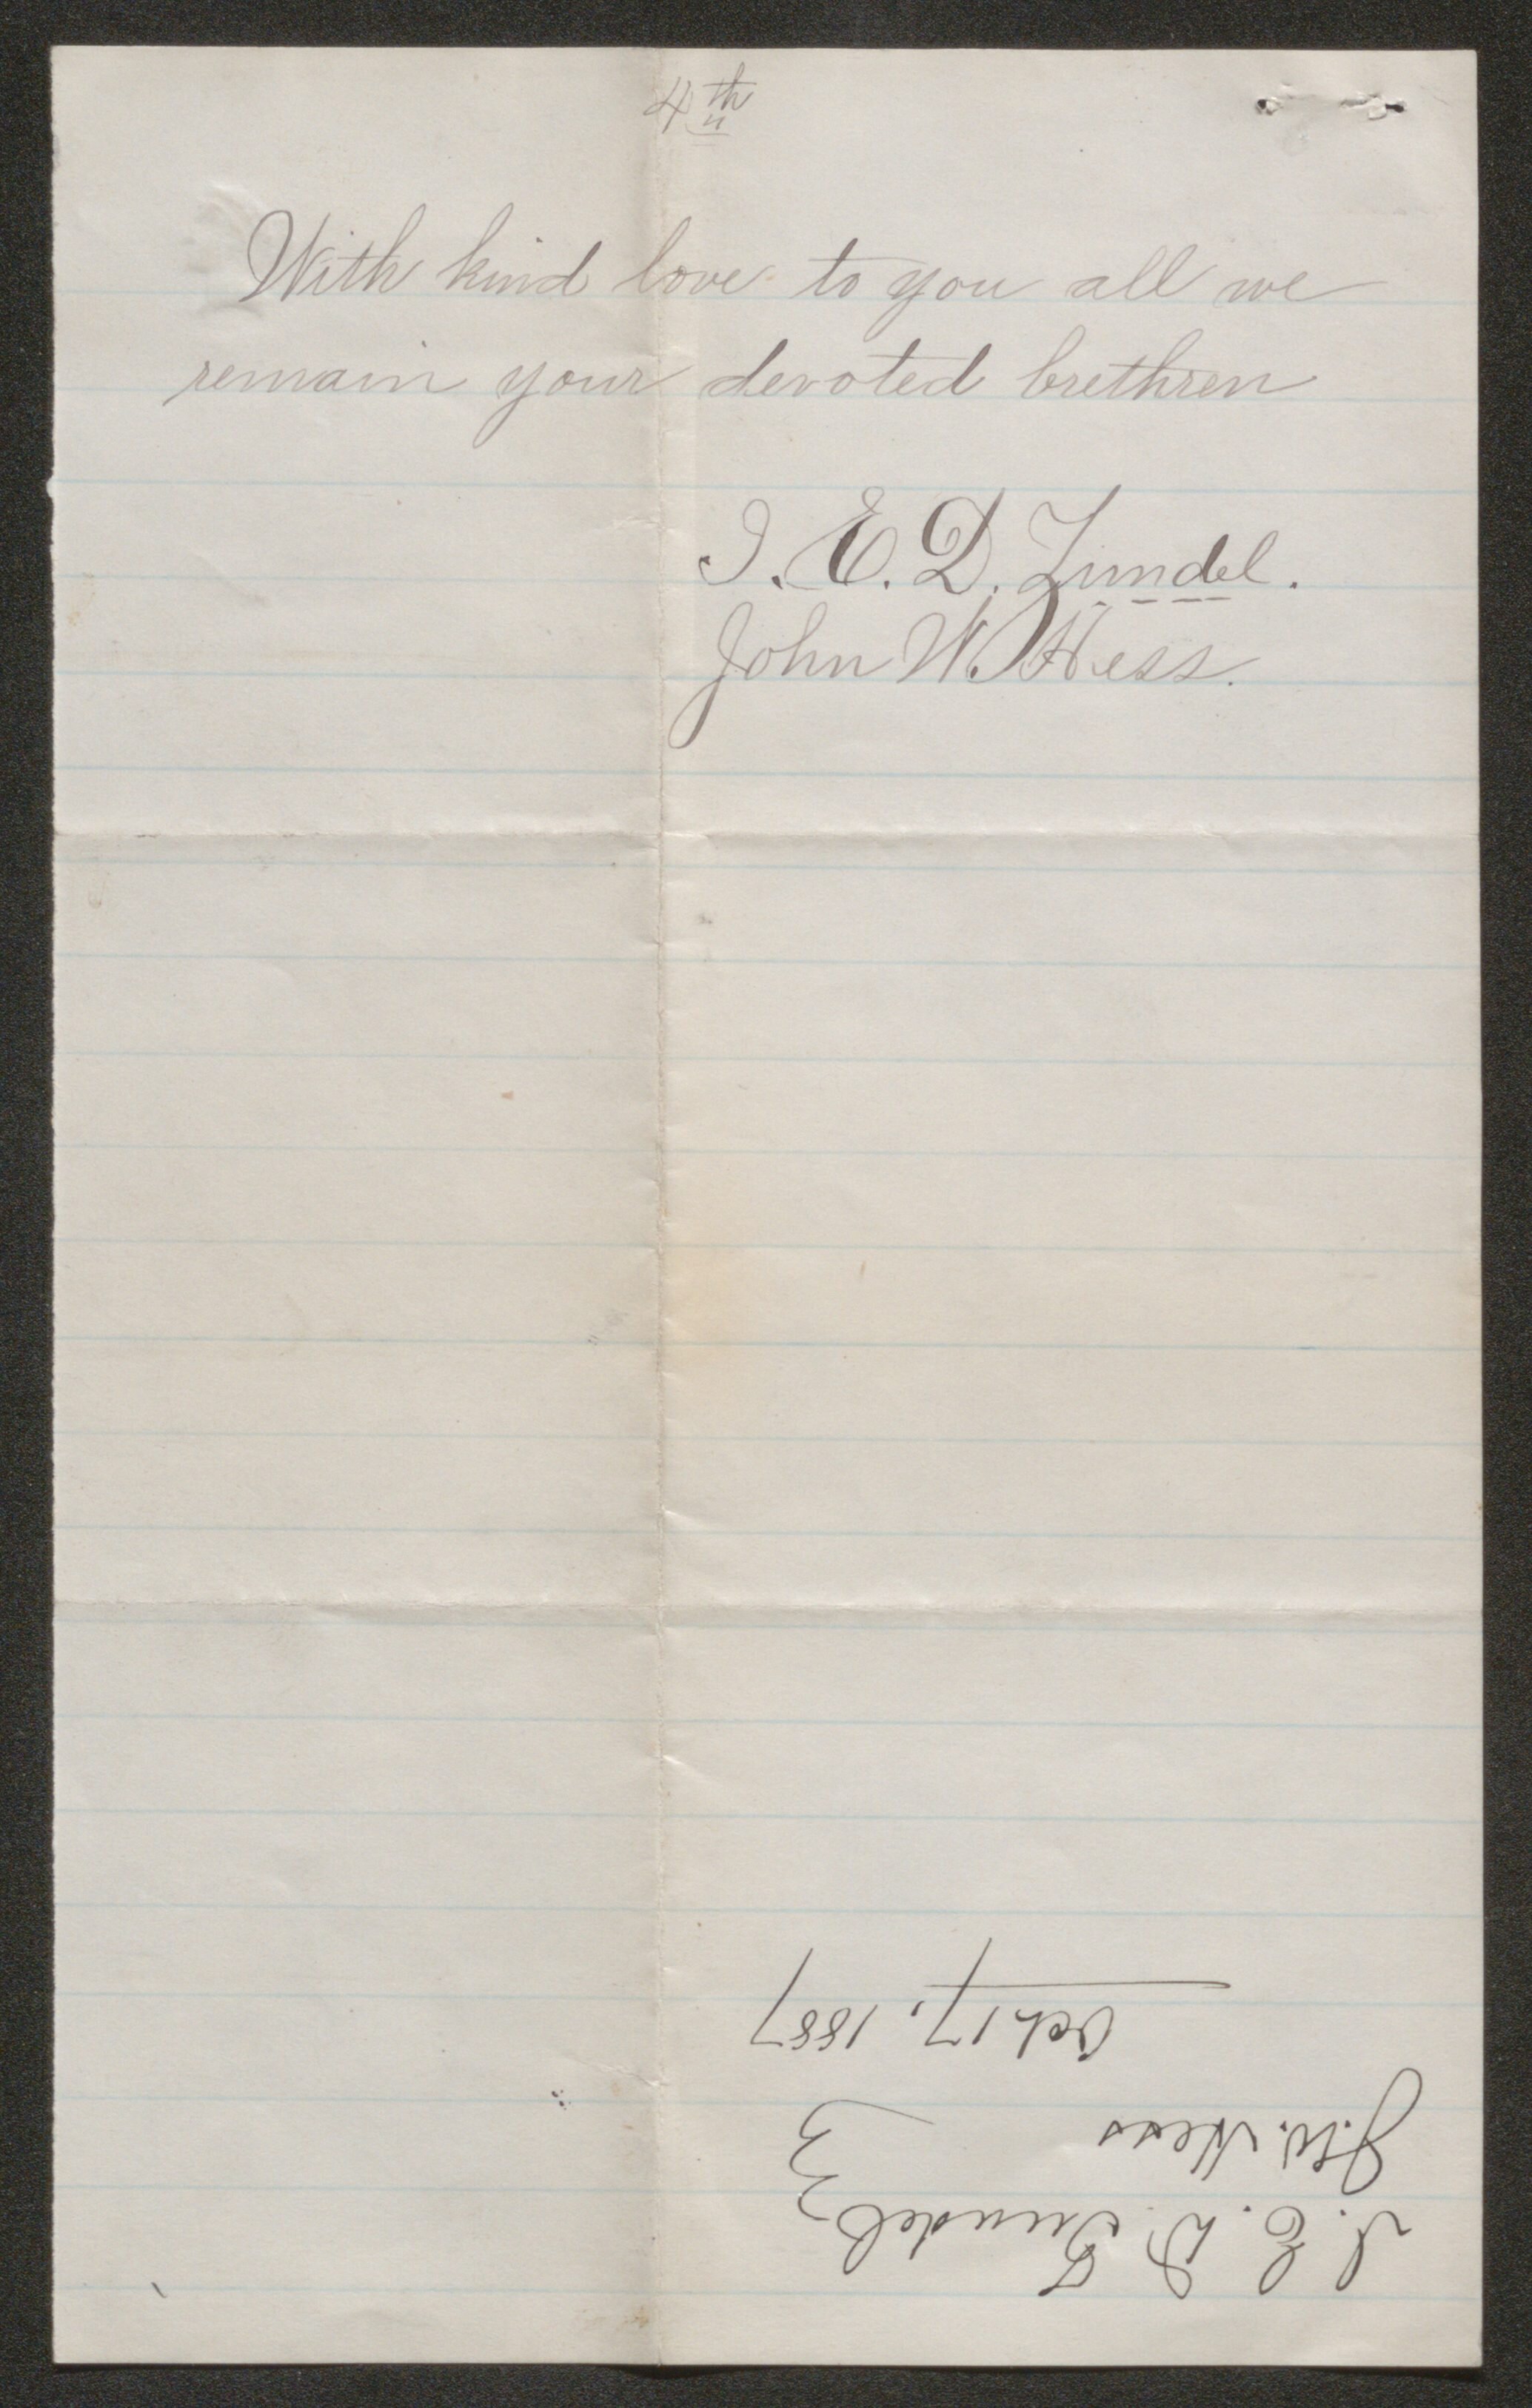 4th
With kind love to you all we
remain your devoted brethren
I. E. D. Zundel.
John W. Hess.
I. E. D. Zundel }
J. W. Hess
Oct 17, 1887